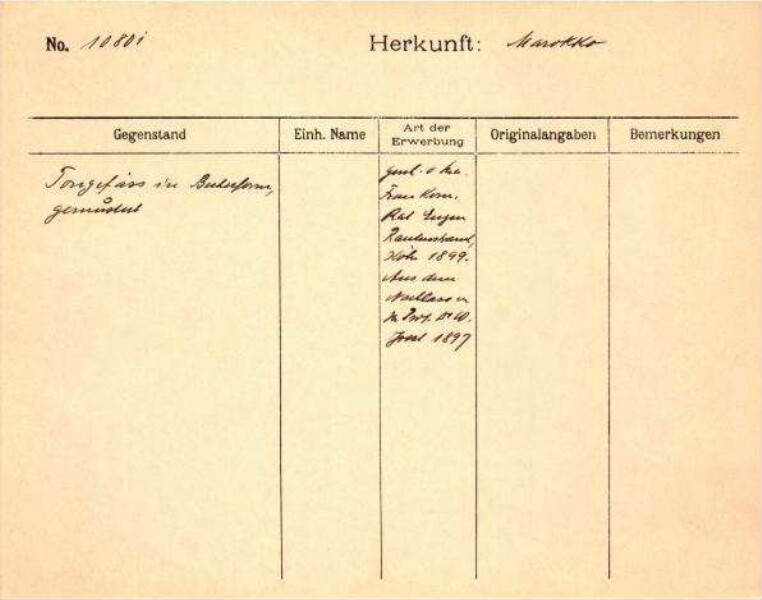 No. 10801
Herkunft: Marokko
Gegenstand
Einh. Name
Art der
Erwerbung
Originalangaben
Bemerkungen
Tongefäss in Becherform,
gemustert
Frau Kom.
Rat Eugen
Rautenstrauch,
Köln 1899.
Aus dem
Nachlass v
Prof. Dr W.
Joest 1897